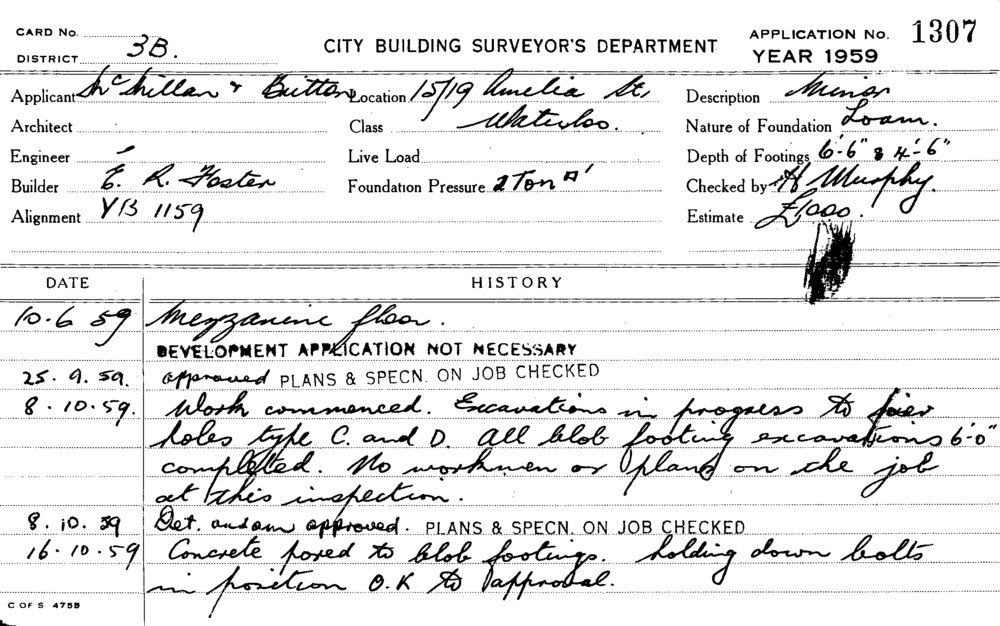 CARD No.
DISTRICT 3B.
CITY BUILDING SURVEYOR'S DEPARTMENT
APPLICATION No. 1307
YEAR 1959
Applicant McMillan & Britton Location 15/19 Amelia St, Description Minor
Architect Class Waterloo. Nature of Foundation Loam.
Engineer Live Load Depth of Footings 6'-6" & 4'-6"
Builder E. R. Foster Foundation Pressure 2 Ton □' Checked by H Murphy.
Alignment VB 1159 Estimate £1000.
DATE HISTORY
10.6 59 Mezzanine floor.
DEVELOPMENT APPLICATION NOT NECESSARY
25.9.59. approved PLANS & SPECN. ON JOB CHECKED
8.10.59. Work commenced. Excavations in progress to pier
holes type C. and D. All blob footing excavations 6'-0"
completed. No workmen or plans on the job
at this inspection.
8.10.59 Det. approved. PLANS & SPECN. ON JOB CHECKED
16.10.59 Concrete pored to blob footings. holding down bolts
in position O.K to approval.
C OF S 475B